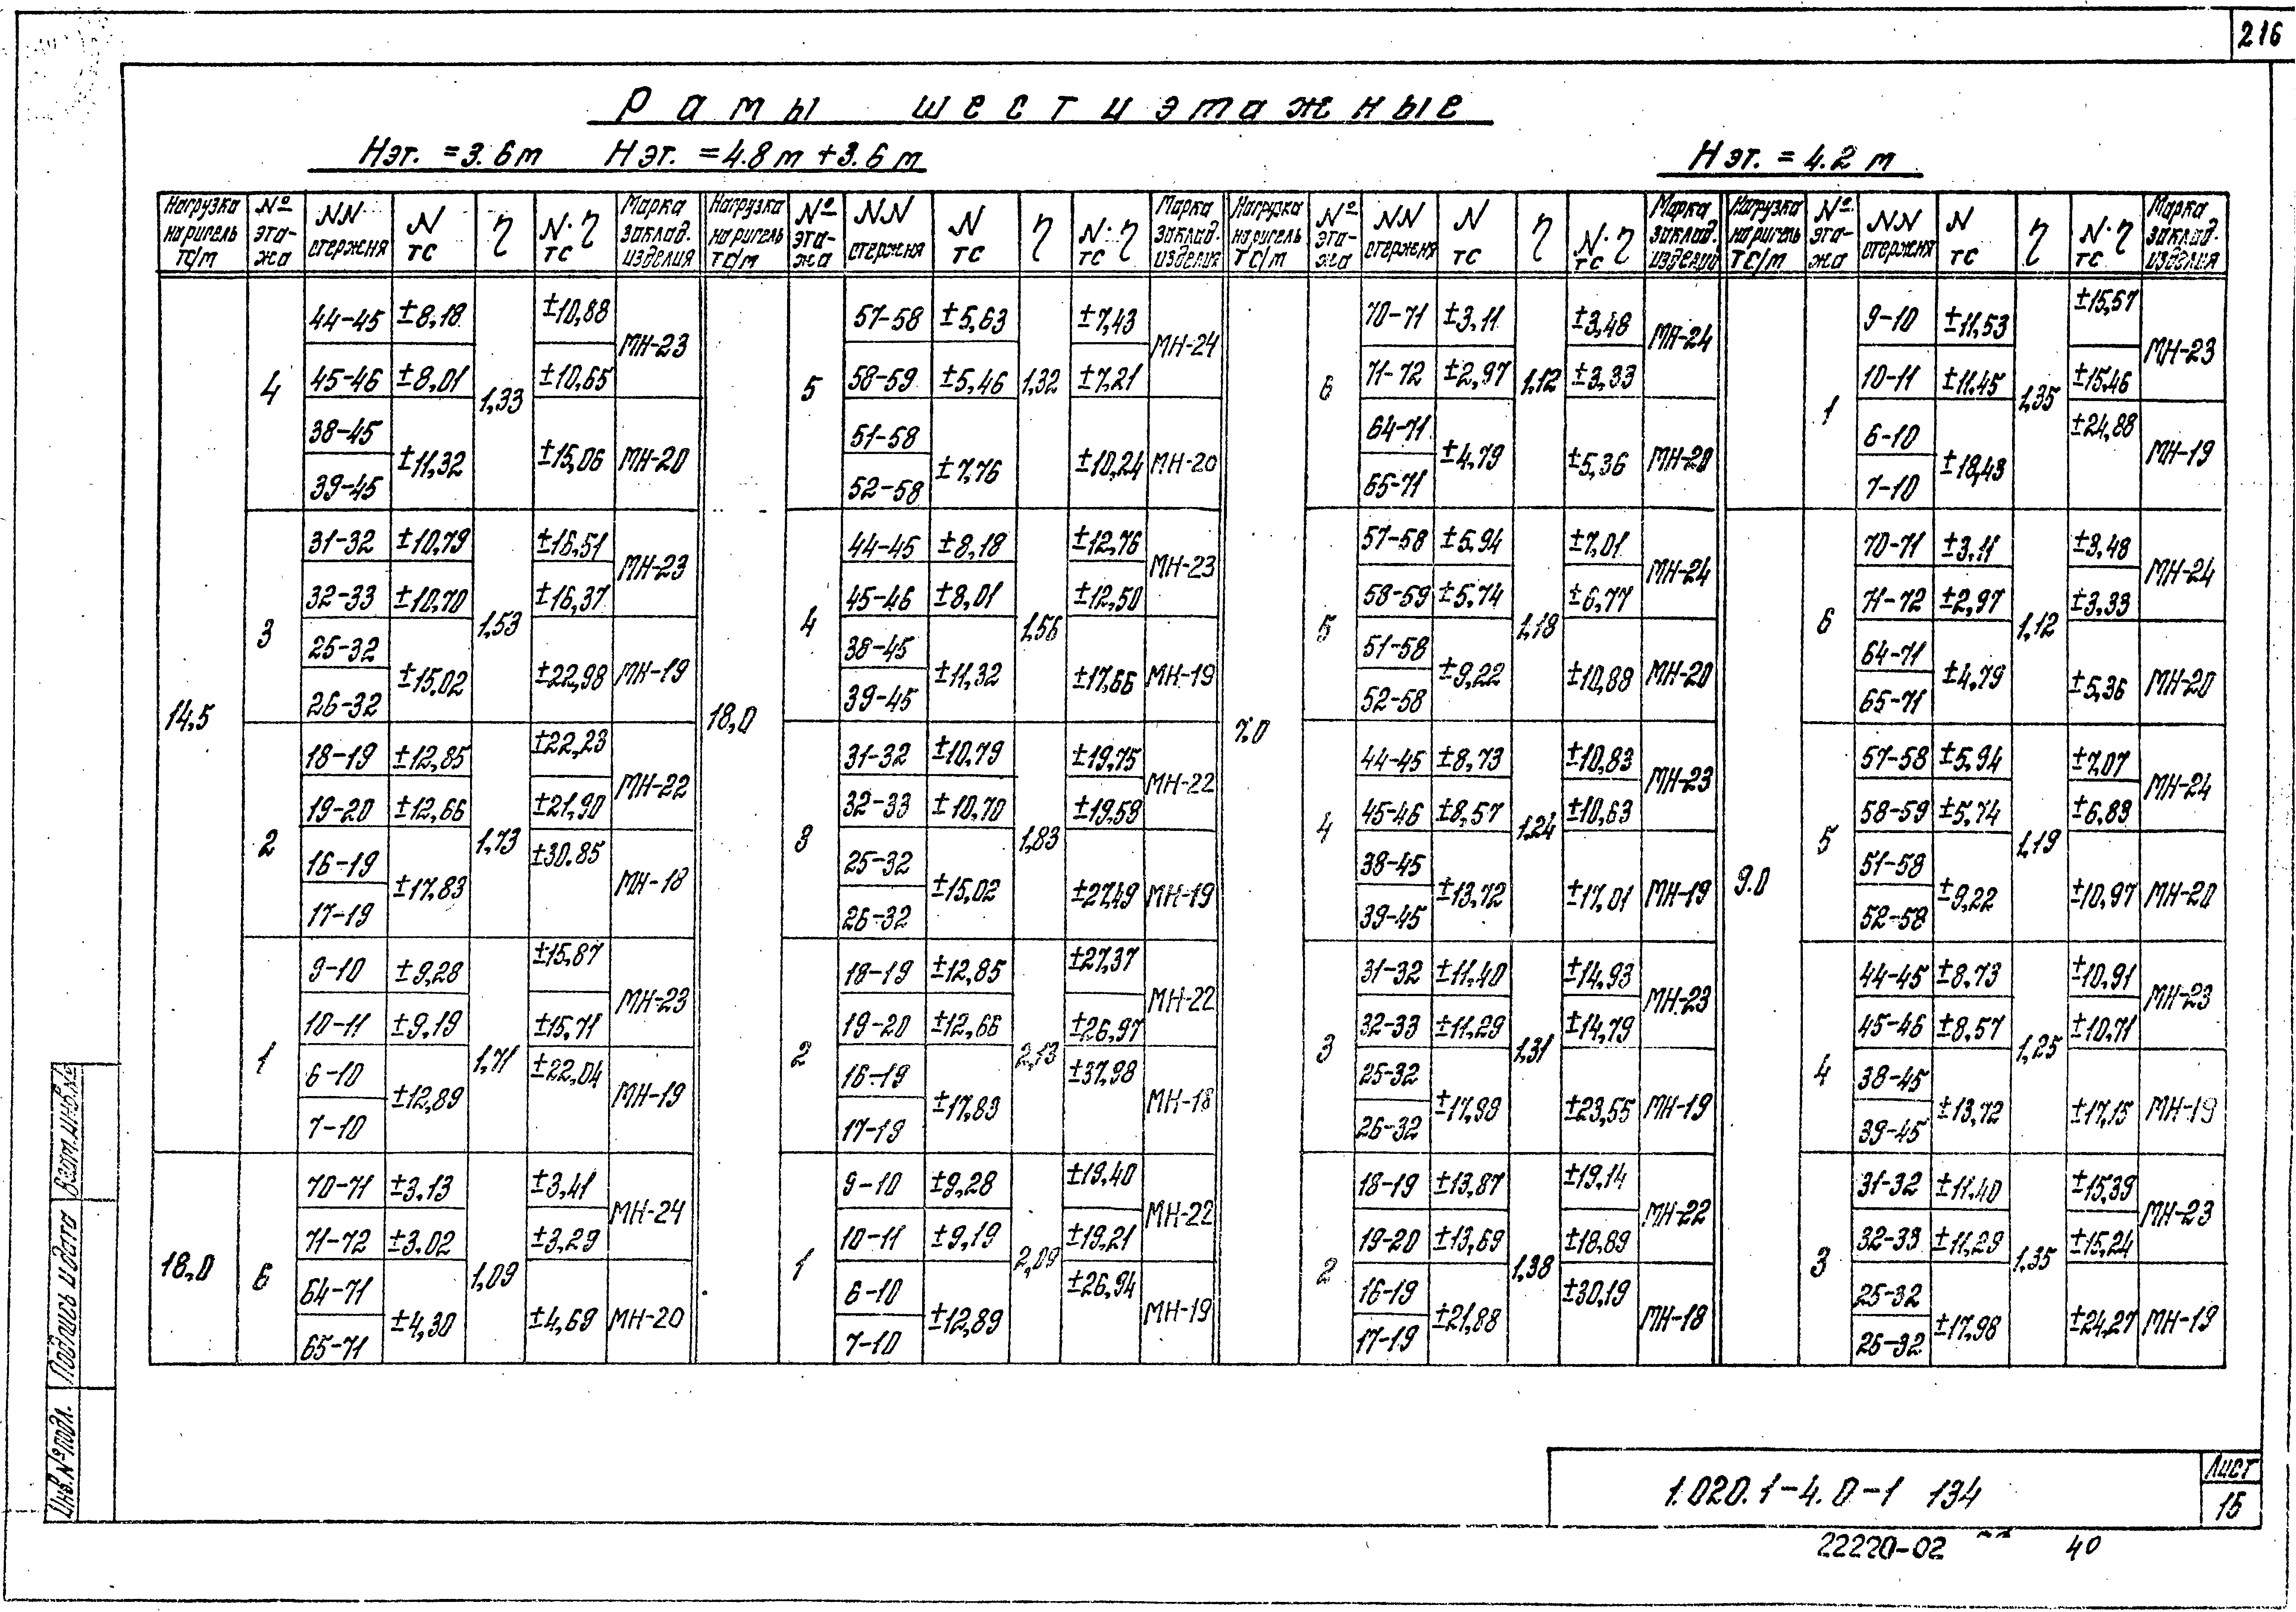 216
Рамы шестиэтажные
Нэт. =3.6м Нэт. =4.8м+3.6м Нэт. =4.2м
Нагрузка на ригель тс/м | №º эта-жа | NN стержня | N тс | η | N·η тс | Марка заклад. изделия
14,5 | 4 | 44-45 | ±8,18 | 1,33 | ±10,88 | МН-23
45-46 | ±8,01 | ±10,65
38-45 | ±11,32 | ±15,06 | МН-20
39-45
3 | 31-32 | ±10,79 | 1,53 | ±16,51 | МН-23
32-33 | ±10,70 | ±16,37
25-32 | ±15,02 | ±22,98 | МН-19
26-32
2 | 18-19 | ±12,85 | 1,73 | ±22,23 | МН-22
19-20 | ±12,66 | ±21,90
16-19 | ±17,83 | ±30.85 | МН-18
17-19
1 | 9-10 | ±9,28 | 1,71 | ±15,87 | МН-23
10-11 | ±9,19 | ±15,71
6-10 | ±12,89 | ±22,04 | МН-19
7-10
18,0 | 6 | 70-71 | ±3,13 | 1,09 | ±3,41 | МН-24
71-72 | ±3.02 | ±3,29
64-71 | ±4,30 | ±4,69 | МН-20
65-71
Нагрузка на ригель тс/м | №º эта-жа | NN стержня | N тс | η | N·η тс | Марка заклад. изделия
18,0 | 5 | 57-58 | ±5,63 | 1,32 | ±7,43 | МН-24
58-59 | ±5,46 | ±7,21
51-58 | ±7,76 | ±10,24 | МН-20
52-58
4 | 44-45 | ±8,18 | 1,56 | ±12,76 | МН-23
45-46 | ±8,01 | ±12,50
38-45 | ±11,32 | ±17,66 | МН-19
39-45
3 | 31-32 | ±10,79 | 1,83 | ±19,75 | МН-22
32-33 | ±10,70 | ±19,58
25-32 | ±15,02 | ±27,49 | МН-19
26-32
2 | 18-19 | ±12,85 | 2,13 | ±27,37 | МН-22
19-20 | ±12,66 | ±26,97
16-19 | ±17,83 | ±37,98 | МН-18
17-19
1 | 9-10 | ±9,28 | 2,09 | ±19,40 | МН-22
10-11 | ±9,19 | ±19,21
6-10 | ±12,89 | ±26,94 | МН-19
7-10
Нагрузка на ригель тс/м | №º эта-жа | NN стержня | N тс | η | N·η тс | Марка заклад. изделий
7.0 | 6 | 70-71 | ±3,11 | 1,12 | ±3,48 | МН-24
71-72 | ±2,97 | ±3,33
64-71 | ±4,79 | ±5,36 | МН-20
65-71
5 | 57-58 | ±5,94 | 1,18 | ±7,01 | МН-24
58-59 | ±5,74 | ±6,77
51-58 | ±9,22 | ±10,88 | МН-20
52-58
4 | 44-45 | ±8,73 | 1,24 | ±10,83 | МН-23
45-46 | ±8,57 | ±10,63
38-45 | ±13,72 | ±17,01 | МН-19
39-45
3 | 31-32 | ±11,40 | 1,31 | ±14,93 | МН-23
32-33 | ±11,29 | ±14,79
25-32 | ±17,98 | ±23,55 | МН-19
26-32
2 | 18-19 | ±13,87 | 1,38 | ±19,14 | МН-22
19-20 | ±13,69 | ±18,89
16-19 | ±21,88 | ±30,19 | МН-18
17-19
Нагрузка на ригель тс/м | №º эта-жа | NN стержня | N тс | η | N·η тс | Марка заклад. изделия
9.0 | 1 | 9-10 | ±11,53 | 1,35 | ±15,57 | МН-23
10-11 | ±11,45 | ±15,46
6-10 | ±18,43 | ±24,88 | МН-19
7-10
6 | 70-71 | ±3,11 | 1,12 | ±3,48 | МН-24
71-72 | ±2,97 | ±3,33
64-71 | ±4,79 | ±5,36 | МН-20
65-71
5 | 57-58 | ±5,94 | 1,19 | ±7,07 | МН-24
58-59 | ±5,74 | ±6,83
51-58 | ±9,22 | ±10,97 | МН-20
52-58
4 | 44-45 | ±8,73 | 1,25 | ±10,91 | МН-23
45-46 | ±8,57 | ±10,71
38-45 | ±13,72 | ±17,15 | МН-19
39-45
3 | 31-32 | ±11,40 | 1,35 | ±15,39 | МН-23
32-33 | ±11,29 | ±15,24
25-32 | ±17,98 | ±24,27 | МН-19
26-32
Инв.№подл. Подпись и дата Взам.инв.№
1.020.1-4.0-1 134
Лист
15
22220-02 40